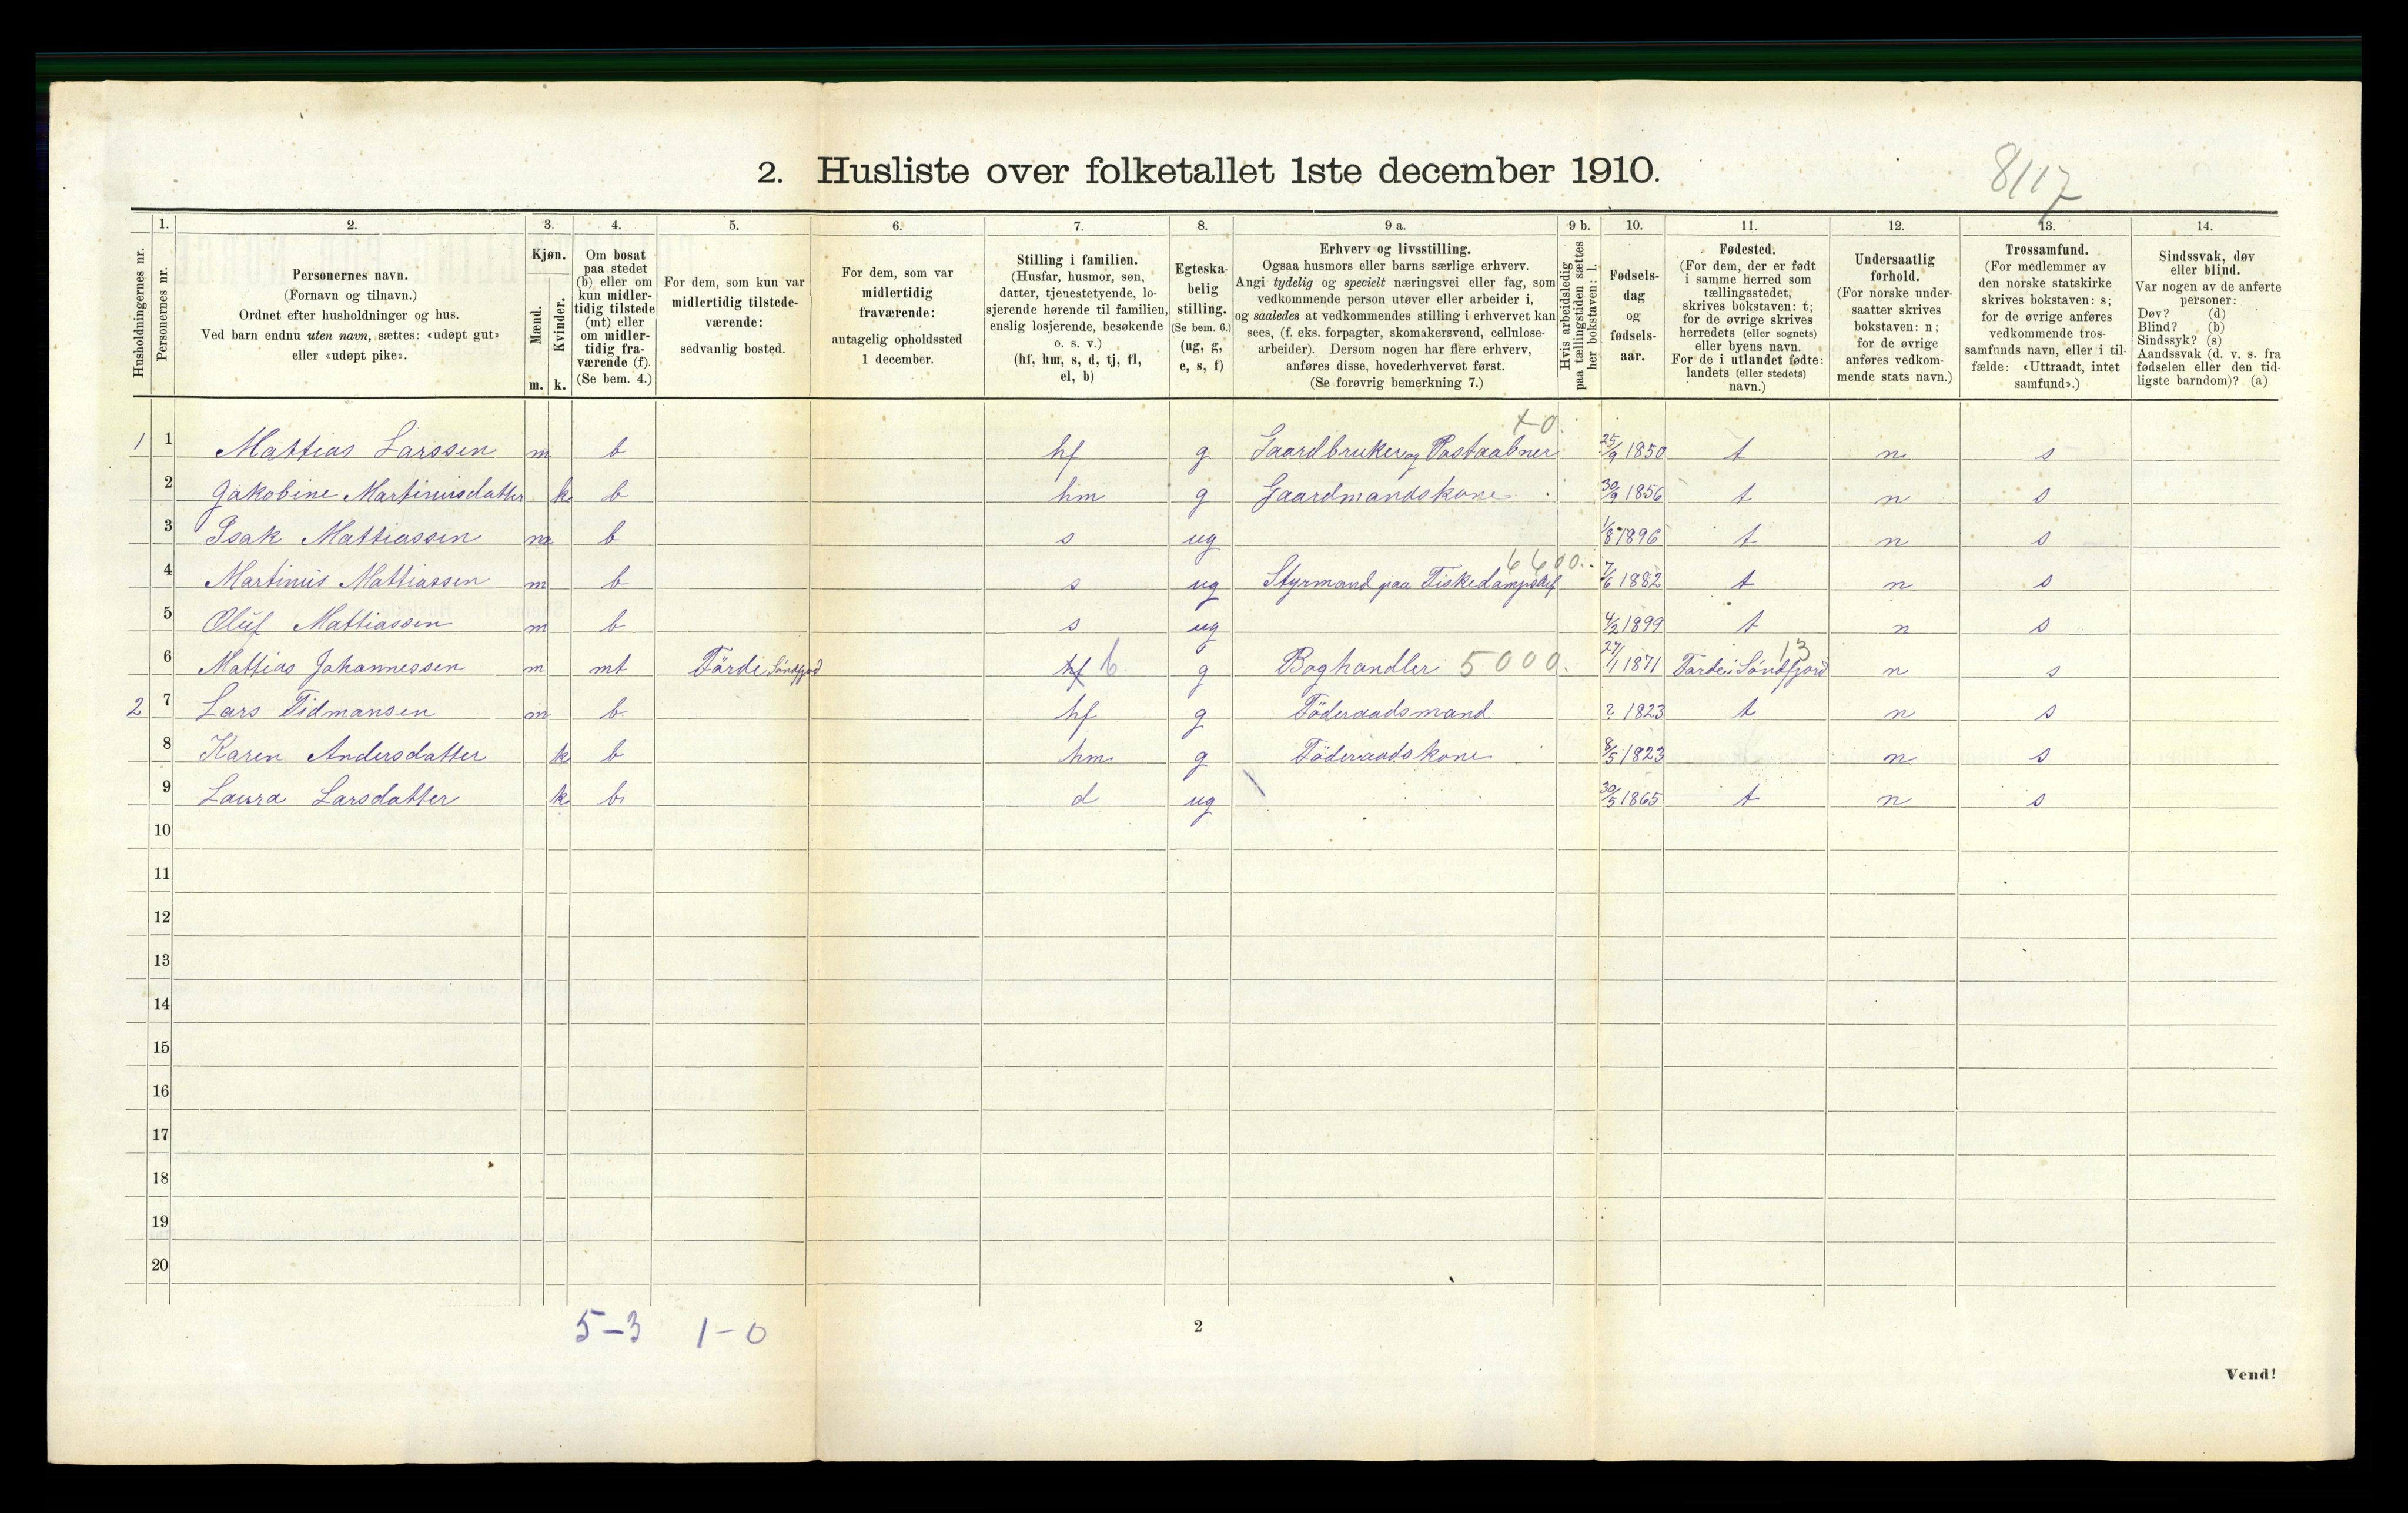 8/17
2. Husliste over folketallet 1ste december 1910.
Husholdningernes nr.
1.
Personernes nr.
2.
Personernes navn.
(Fornavn og tilnavn.)
Ordnet efter husholdninger og hus.
Ved barn endnu uten navn, sættes: «udøpt gut»
eller «udøpt pike».
3.
Kjøn.
Mænd.
Kvinder.
m. k.
4.
Om bosat
paa stedet
(b) eller om
kun midler-
tidig tilstede
(mt) eller
om midler-
tidig fra-
værende (f).
(Se bem. 4.)
5.
For dem, som kun var
midlertidig tilstede-
værende:
sedvanlig bosted.
6.
For dem, som var
midlertidig
fraværende:
antagelig opholdssted
1 december.
7.
Stilling i familien.
(Husfar, husmor, søn,
datter, tjenestetyende, lo-
sjerende hørende til familien,
enslig losjerende, besøkende
o. s. v.)
(hf, hm, s, d, tj, fl,
el, b)
8.
Egteska-
belig
stilling.
(Se bem. 6.)
(ug, g,
e, s, f)
9 a.
Erhverv og livsstilling.
Ogsaa husmors eller barns særlige erhverv.
Angi tydelig og specielt næringsvei eller fag, som
vedkommende person utøver eller arbeider i,
og saaledes at vedkommendes stilling i erhvervet kan
sees, (f. eks. forpagter, skomakersvend, cellulose-
arbeider). Dersom nogen har flere erhverv,
anføres disse, hovederhvervet først.
(Se forøvrig bemerkning 7.)
9 b.
Hvis arbeidsledig
paa tællingstiden sættes
her bokstaven: l.
10.
Fødsels-
dag
og
fødsels-
aar.
11.
Fødested.
(For dem, der er født
i samme herred som
tællingsstedet,
skrives bokstaven: t;
for de øvrige skrives
herredets (eller sognets)
eller byens navn.
For de i utlandet fødte:
landets (eller stedets)
navn.)
12.
Undersaatlig
forhold.
(For norske under-
saatter skrives
bokstaven: n;
for de øvrige
anføres vedkom-
mende stats navn.)
13.
Trossamfund.
(For medlemmer av
den norske statskirke
skrives bokstaven: s;
for de øvrige anføres
vedkommende tros-
samfunds navn, eller i til-
fælde: «Uttraadt, intet
samfund».)
14.
Sindssvak, døv
eller blind.
Var nogen av de anførte
personer:
Døv? (d)
Blind? (b)
Sindssyk? (s)
Aandssvak (d. v. s. fra
fødselen eller den tid-
ligste barndom)? (a)
1 1 Mattias Larssen m b hf g Gaardbruker og Postaabner 25/9 1850 t n s
2 Jakobine Martinusdatter k b hm g Gaardmandskone 30/9 1856 t n s
3 Isak Mattiassen m b s ug 1/8 1896 t n s
6600.
4 Martinus Mattiassen m b s ug Styrmand paa Fiskedampskf 7/6 1882 t n s
5 Oluf Mattiassen m b s ug 4/2 1899 t n s
13
6 Mattias Johannessen m mt Førde i Søndfjord hf b g Boghandler 5000. 27/1 1871 Førde i Søndfjord n s
2 7 Lars Tidmansen m b hf g Föderaadsmand ? 1823 t n s
8 Karen Andersdatter k b hm g Föderaadskone 8/5 1823 n s
9 Laura Larsdatter k b d ug 30/5 1865 t n s
10
11
12
13
14
15
16
17
18
19
20
5-3 1-0
2
Vend!